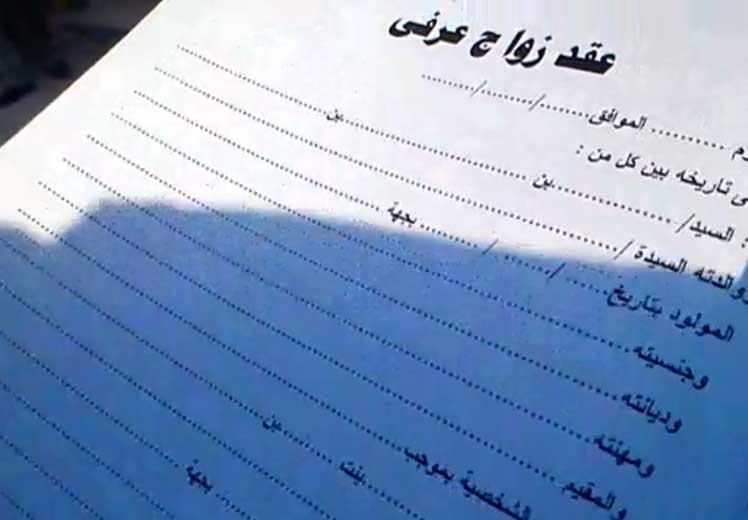 عقد زواج عرفى
......... الموافق ....../......../........
تاريخه بين كل من :
السيد/ ..................بن ..........................بن..........................
والدته السيدة /..........................................................
المولود بتاريخ....../......../............بجهة ........................
وجنسيته ..........................................................
وديانته ..........................................................
ومهنته ..........................................................
والمقيم ..........................................................
الشخصية بموجب ..........................................................
..........بنت ..............بن..........................
.......... بجهة ..........................